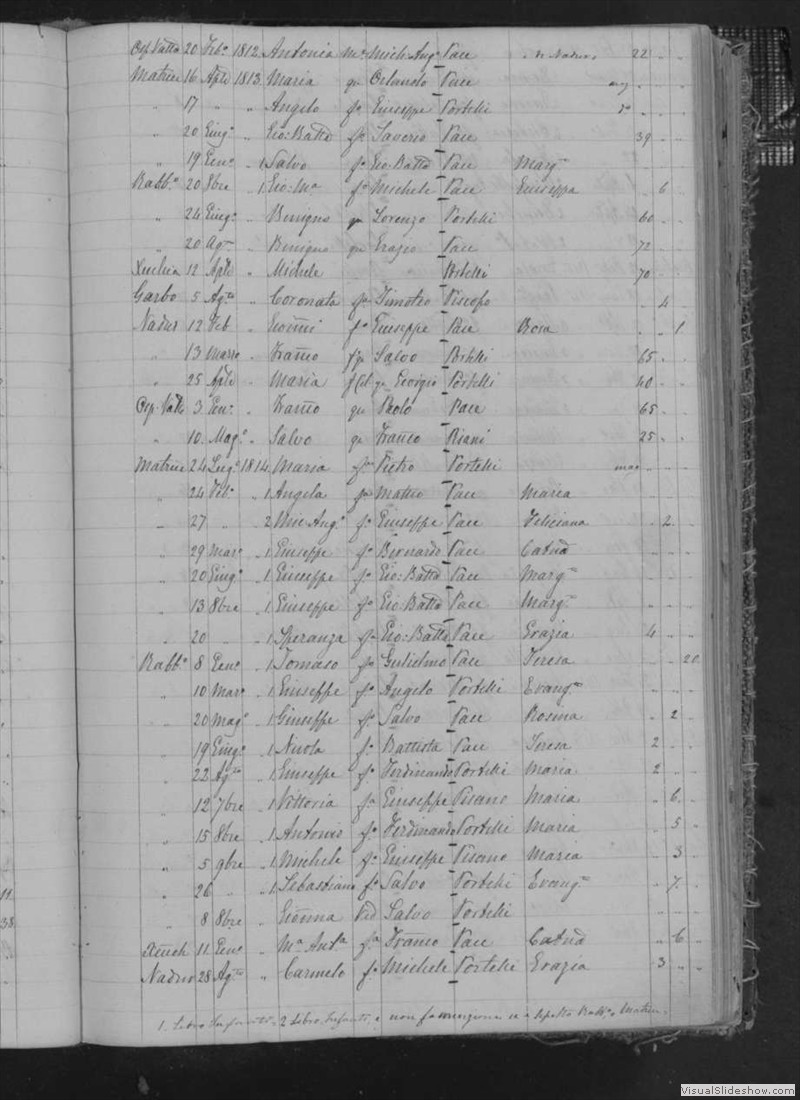 20 Feb.o 1812 Antonia Mich: Ang.o Pace 22
Matrice 16 Aple 1813 Maria qu Orlando Pace
" 17 " " Angelo fo Giuseppe Portelli
" 20 Giug.o " Gio: Batta Saverio Pace 39
" 19 Gen.o " 1 Salvo fo Gio: Batta Pace Marg.
Rabb.o 20 8bre 1 Gio: Ma fo Michele Pace Giuseppa 6
" 24 Giug.o " Benigno qu Lorenzo Portelli 60
" 20 Ag. " Benigno qu Grazio Pace 72
12 Aple " Michele Portelli 70
Garbo 5 Ag.to " Coronata fa Timoteo Piscopo 4
Nadur 12 Feb " Gioanni fo Giuseppe Pace Rosa 1
" 13 Marzo " Franco Salvo Portelli 65
" 25 Aple " Maria qu Giorgio Portelli 40
3 Gen.o " Franco qu Paolo Pace 65
" 10 Mag.o " Salvo qu Franco Pisani 25
Matrice 24 Lug.o 1814 Maria fa Pietro Portelli
" 24 Feb.o " 1 Angela fa Matteo Pace Maria
" 27 " " 2 Mic: Ang.o fo Giuseppe Pace Feliciana 2
" 29 Mar.o " 1 Giuseppe fo Bernardo Pace Catna
" 20 Giug.o " 1 Giuseppe fo Gio: Batta Pace Marg.
" 13 8bre " 1 Giuseppe fo Gio: Batta Pace Marg.
" 20 " " 1 Speranza fa Gio: Batta Pace Grazia 4
Rabb.o 8 Gen.o " 1 Tomaso fo Gulielmo Pace Teresa 20
" 10 Mar.o " 1 Giuseppe fo Angelo Portelli Evang.
" 20 Mag.o " 1 Giuseppe fo Salvo Pace Rosina 2
" 19 Giug.o " 1 Nicola fo Battista Pace Teresa 2
" 22 Ag.to " 1 Giuseppe fo Ferdinando Portelli Maria 2
" 12 7bre " 1 Vittoria fa Giuseppe Pisano Maria 6
" 15 8bre " 1 Antonio fo Ferdinando Portelli Maria 5
" 5 9bre " 1 Michele fo Giuseppe Pisano Maria 3
" 26 " " 1 Sebastiano fo Salvo Portelli Evang. 7
" 8 8bre " Gioanna Vid Salvo Portelli
11 Gen.o " Ma Anta fa Franco Pace Catna 6
Nadur 28 Ag.to " Carmelo fo Michele Portelli Grazia 3
1. Libro 2 Libro Infanti, e non Rabb.o e Matrice.
11
38
VisualSlideshow.com